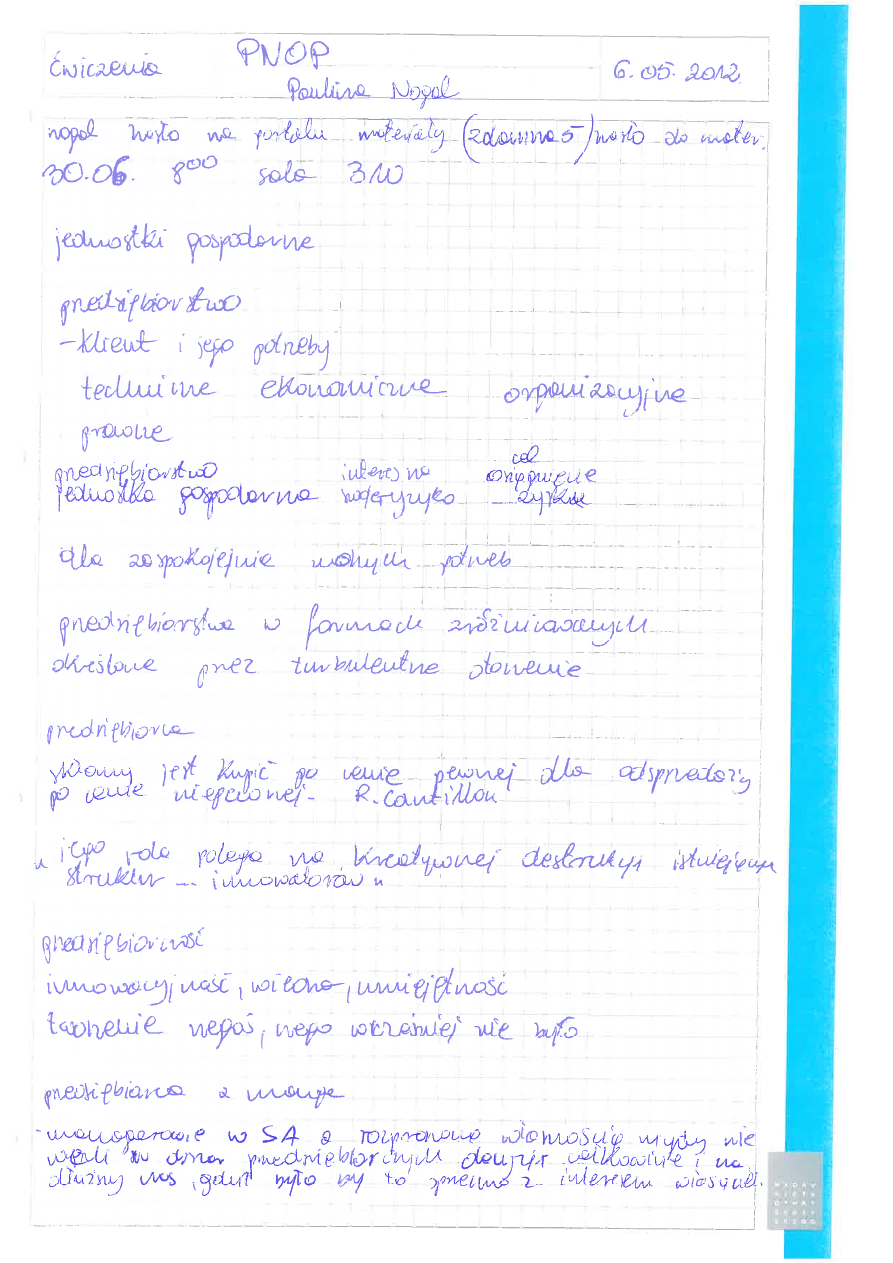 Ćwiczenia PNOP 6.05.2012
Paulina Nogal
nogal hasło na portalu materiały (zdawna5) hasło do mater.
30.06. 8⁰⁰ sala 3W
jednostki gospodarcze
przedsiębiorstwo
-klient i jego potrzeby
techniczne ekonomiczne organizacyjne
prawne
cel
przedsiębiorstwo interes na osiągnięcie
jednostka gospodarcza swoje ryzyko zysku
dla zaspokojenia potrzeb
przedsiębiorstwa w formach zróżnicowanych
określane przez turbulentne otoczenie
przedsiębiorca
skłonny jest kupić po cenie pewnej dla odsprzedaży
po cenie niepewnej- R. Cantillon
" jego rola polega na kreatywnej destrukcji istniejących
struktur ... innowatorów "
przedsiębiorczość
innowacyjność, wiedza, umiejętność
tworzenie czegoś, czego wcześniej nie było
przedsiębiorca a
-managerowie w SA o rozproszonej własności nigdy nie
przedsiębiorczych decyzji całkowicie i na
dłuższy czas, gdyż było by to sprzeczne z interesem